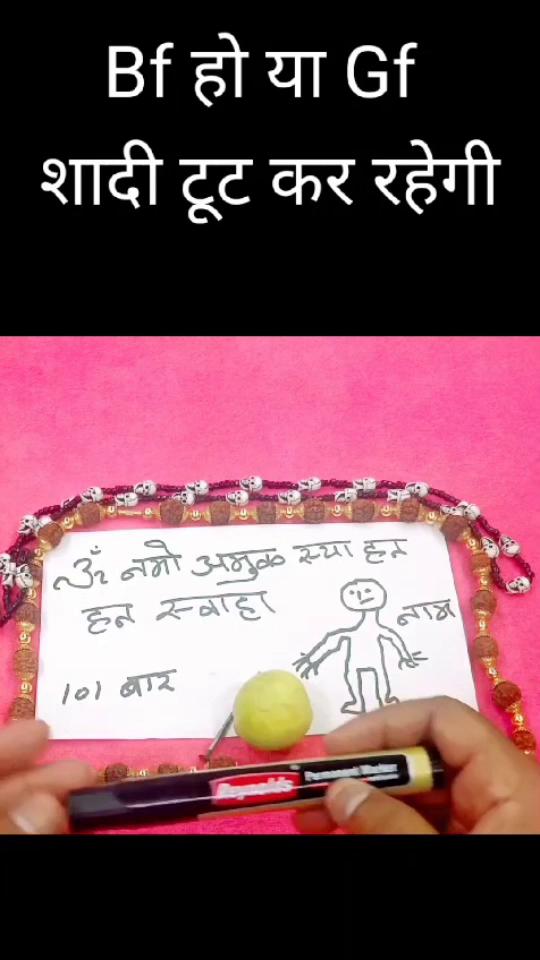 Bf हो या Gf
शादी टूट कर रहेगी
ॐ नमो अमुक स्या हन
हन स्वाहा
नाम
101 बार
Reynolds
Permanent Marker